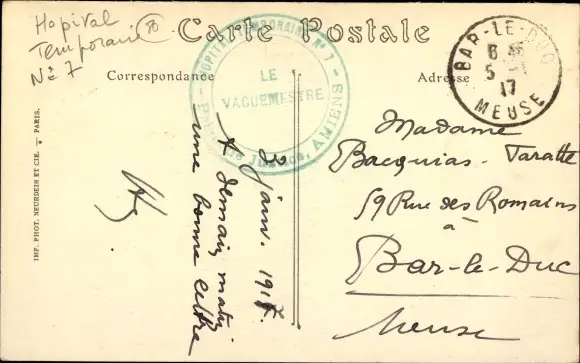 Hopital
Temporaire 76
No 7
Carte Postale
Correspondance
Adresse
HOPITAL TEMPORAIRE No 7
LE
VAGUEMESTRE
Palais de Justice, AMIENS
BAR-LE-DUC
5 - 1
17
MEUSE
IMP. PHOT. NEURDEIN ET CIE. — PARIS.
3 janv. 1917.
A demain matin
une bonne lettre
Madame
Bacquias-Taratte
59 Rue des Romains
à
Bar-le-Duc
Meuse